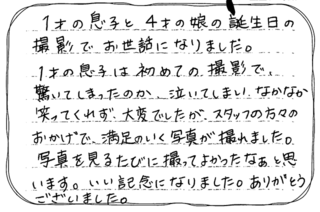 1才の息子と4才の娘の誕生日の
撮影でお世話になりました。
1才の息子は初めての撮影で、
驚いてしまったのか、泣いてしまい、なかなか
笑ってくれず、大変でしたが、スタッフの方々の
おかげで、満足のいく写真が撮れました。
写真を見るたびに撮ってよかったなぁと思
います。いい記念になりました。ありがとう
ございました。